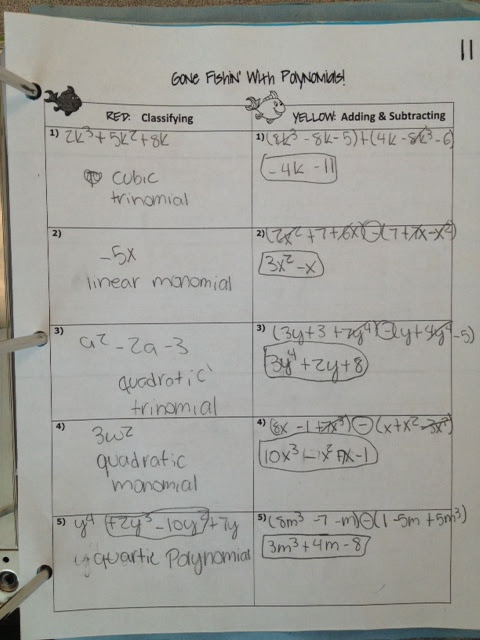 11
Gone Fishin' With Polynomials!
RED: Classifying
YELLOW: Adding & Subtracting
1) 2k³ + 5k² + 8k
cubic
trinomial
1) (8k³ - 8k - 5) + (4k - 8k³ - 6)
-4k - 11
2)
-5x
linear monomial
2) (2x² + 7 + 6x) - (7 + 7x - x²)
3x² - x
3)
a² - 2a - 3
quadratic
trinomial
3) (3y + 3 + 7y⁴) - (y + 4y⁴ - 5)
3y⁴ + 2y + 8
4)
3w²
quadratic
monomial
4) (8x - 1 + 7x³) - (x + x² - 3x³)
10x³ - x² + 7x - 1
5) y⁴ + 2y³ - 10y² + 7y
quartic Polynomial
5) (8m³ - 7 - m) - (1 - 5m + 5m³)
3m³ + 4m - 8